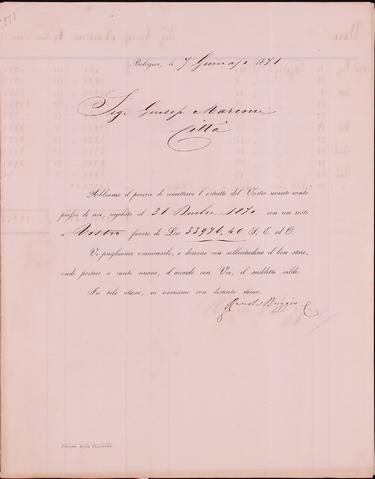 Bologna, li 7 Gennajo 1871
Sigr Giusep. Marconi
Città
Abbiamo il piacere di rimettervi l'estratto del Vostro onorato conto
presso di noi, regolato al 31 Dicembre 1870 con un resto
a Vostro favore di Lire 33971.40 S. E. ed O.
Vi preghiamo esaminarlo, e darcene con sollecitudine il ben stare,
onde portare a conto nuovo, d'accordo con Voi, il suddetto saldo.
In tale attesa, vi riveriamo con distinta stima.